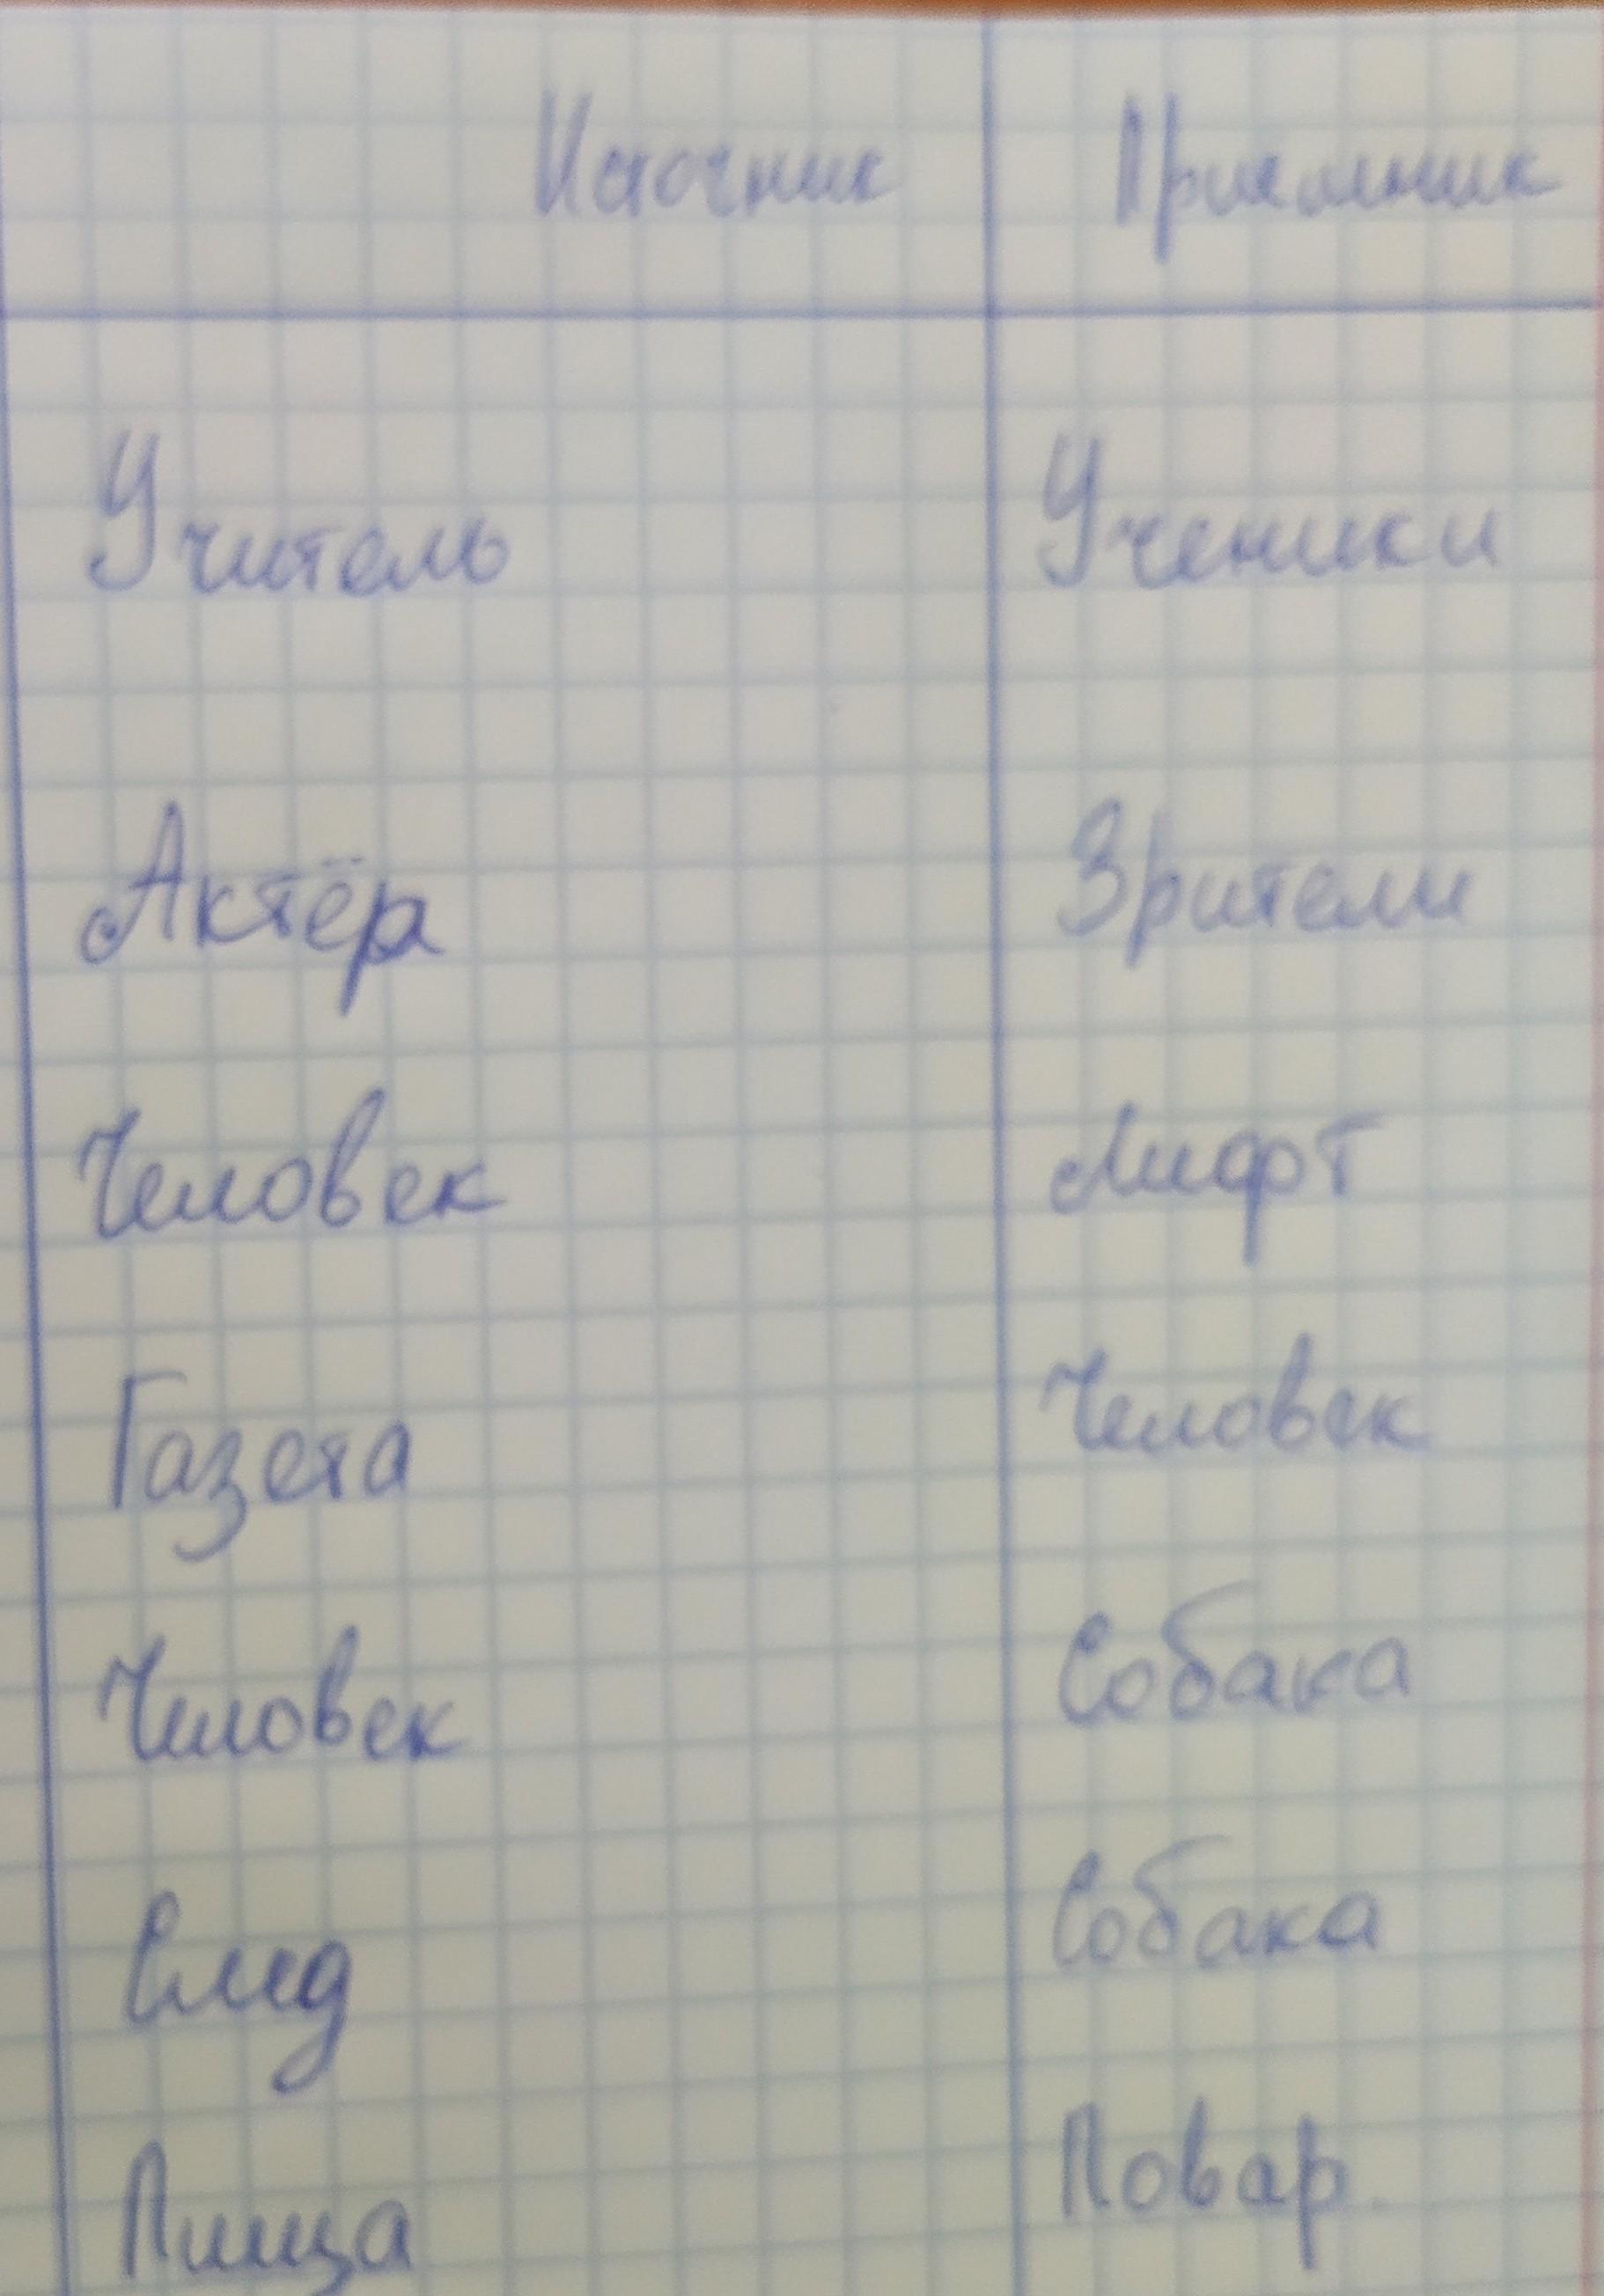 Источник Приемник
Учитель Ученики
Актёр Зрители
Человек Лифт
Газета Человек
Человек Собака
След Собака
Пища Повар